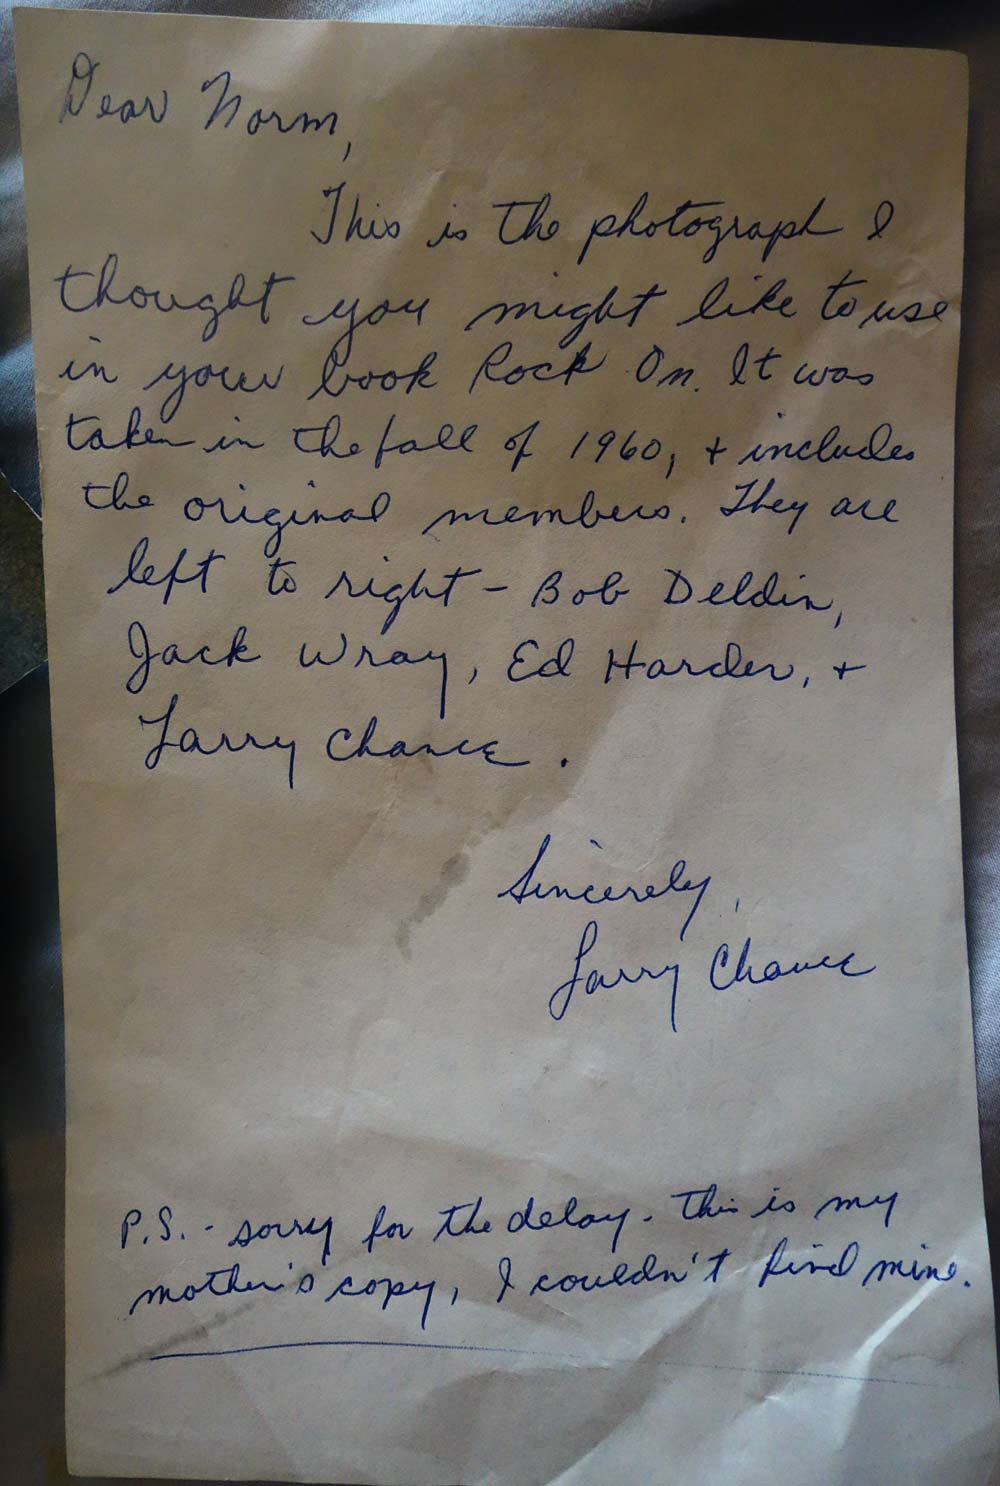 Dear Norm,
This is the photograph I
thought you might like to use
in your book Rock On. It was
taken in the fall of 1960, + includes
the original members. They are
left to right - Bob Deldin,
Jack Wray, Ed Harder, +
Larry Chance.
Sincerely,
Larry Chance
P.S. - sorry for the delay. This is my
mother's copy, I couldn't find mine.